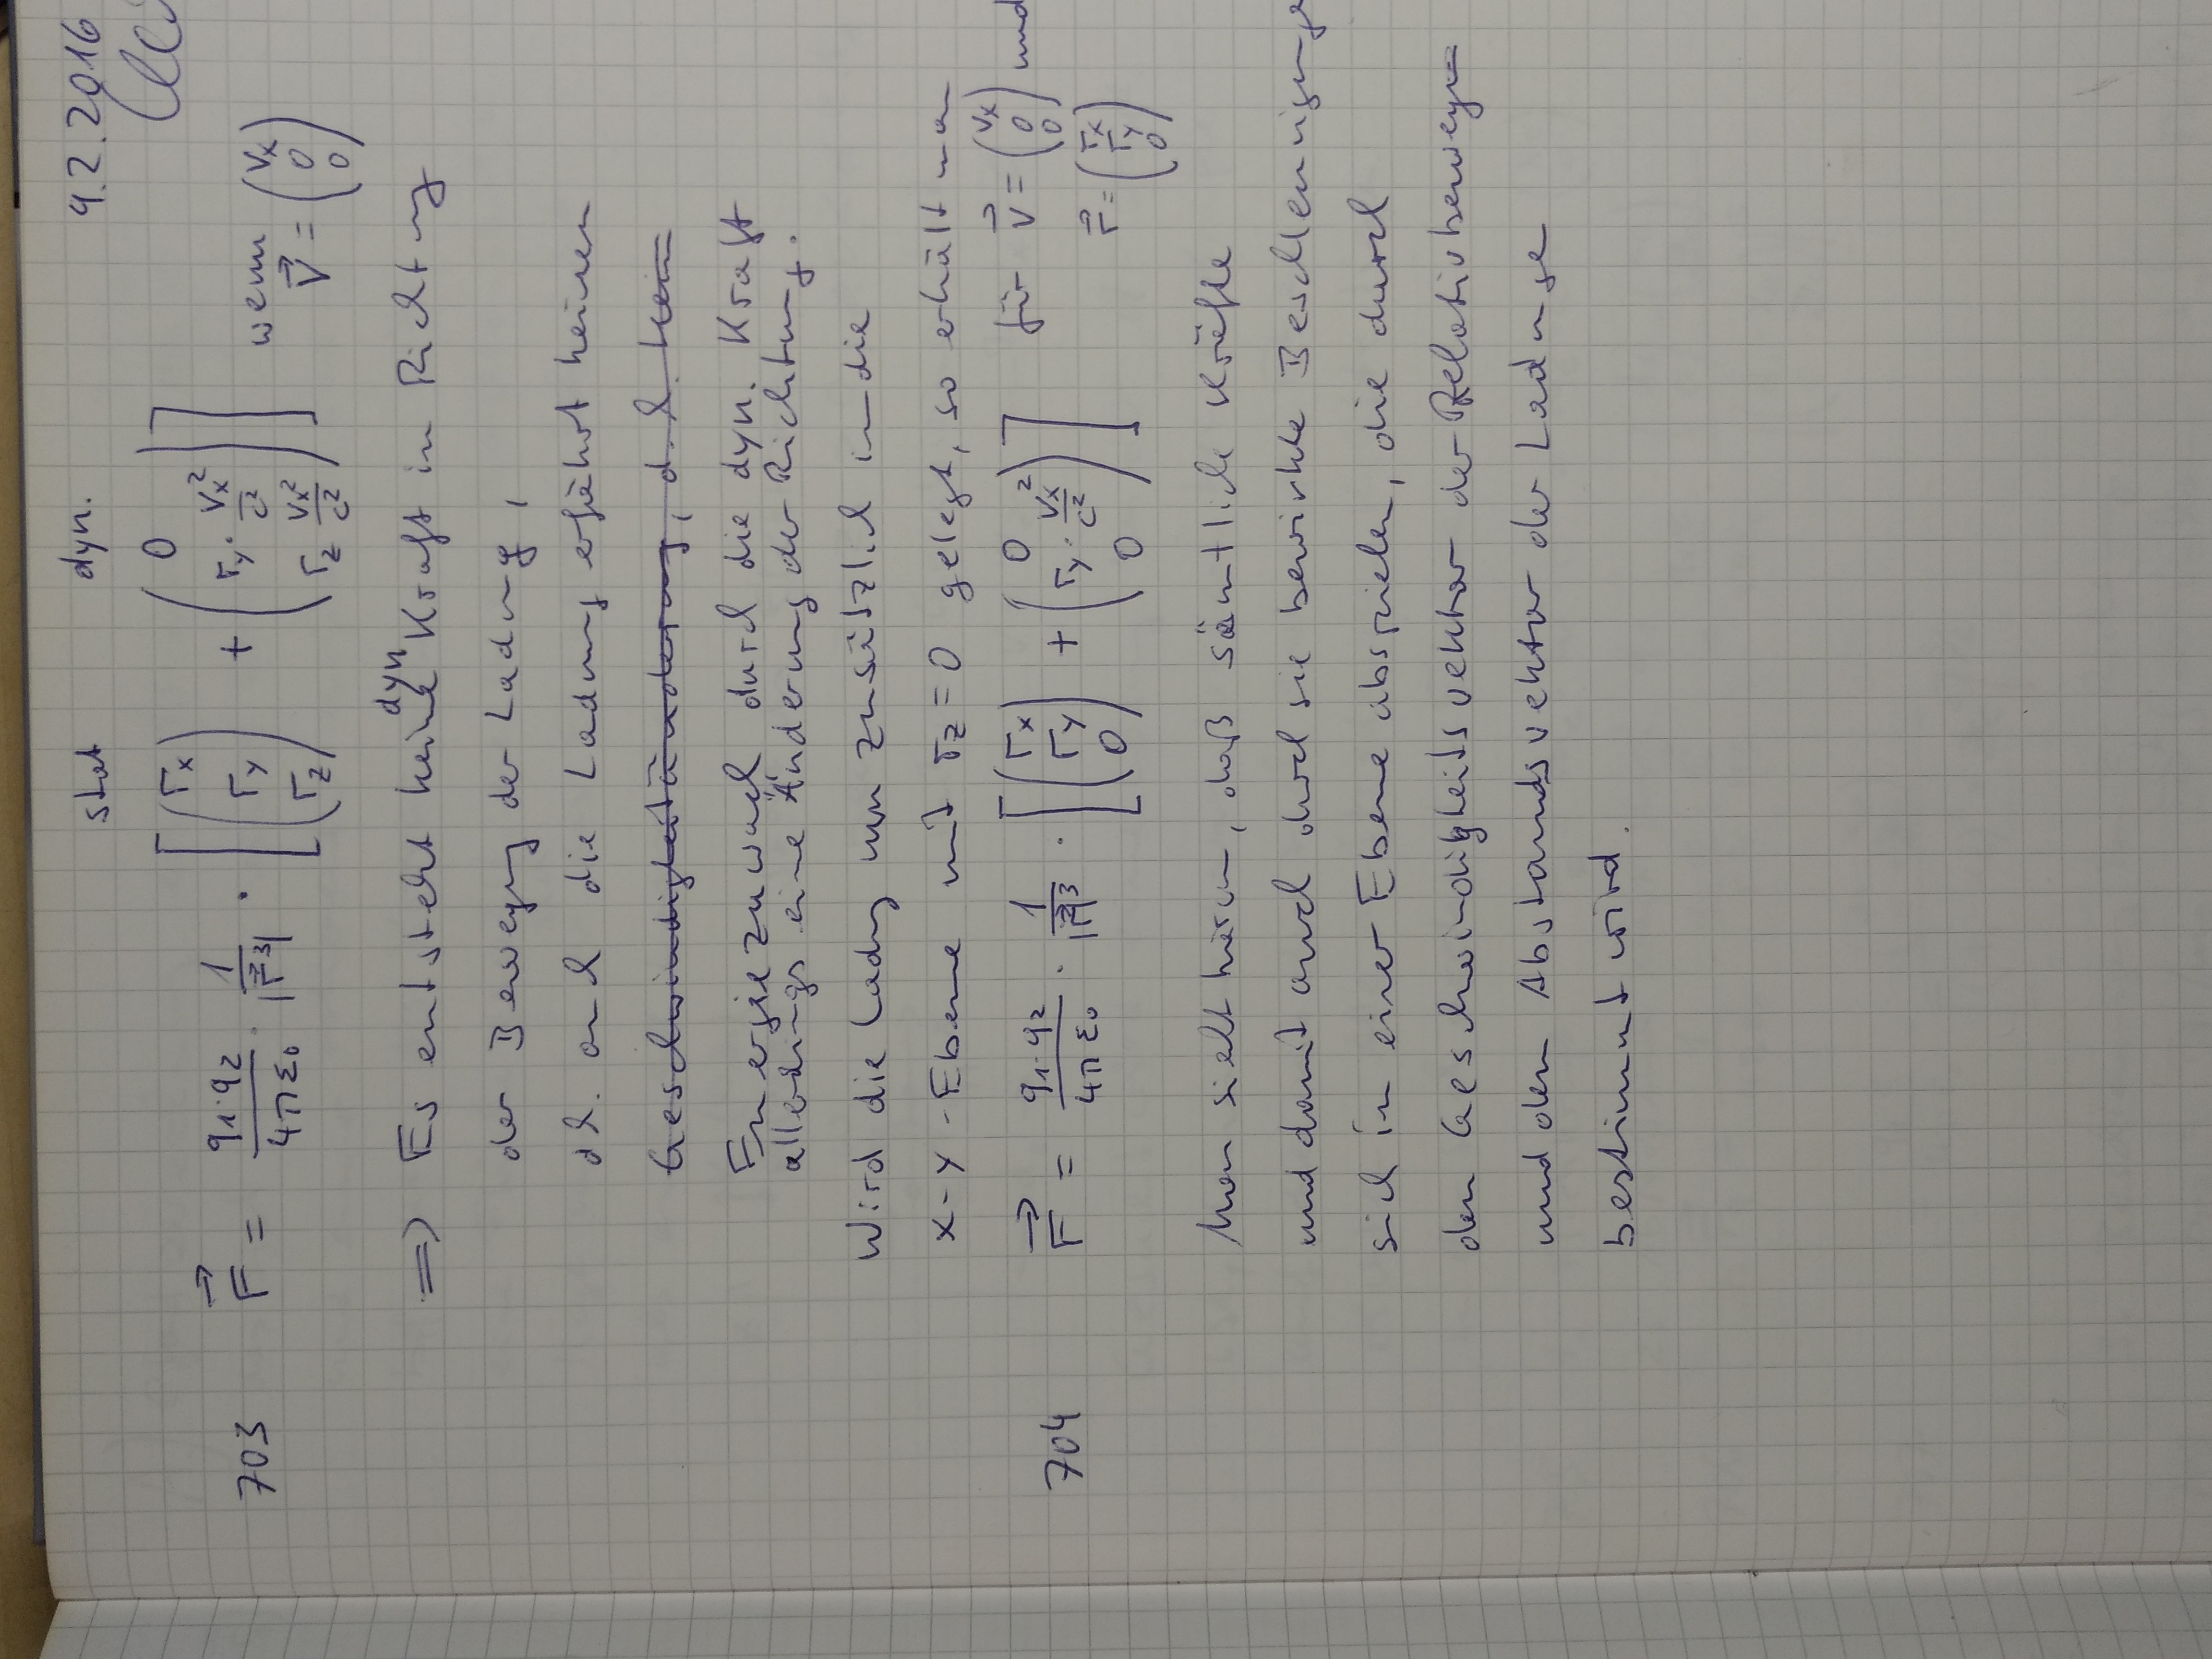 9.2.2016
stat dyn.
703 F⃗ = q1·q2/4πε0 · 1/|r⃗³| · [(rx ry rz) + (0 ry·vx²/c² rz vx²/c²)] wenn v⃗ = (vx 0 0)
=> Es entsteht keine dyn Kraft in Richtung
der Bewegung der Ladung,
dh. auch die Ladung erfährt keinen
Geschwindigkeitänderung, d.h. kein
Energiezuwach durch die dyn. Kraft
allerdings eine Änderung der Richtung.
Wird die Ladung nun zusätzlich in die
x-y-Ebene mit rz=0 gelegt, so erhält man
704 F⃗ = q1·q2/4πε0 · 1/|r⃗|³ · [(rx ry 0) + (0 ry·vx²/c² 0)] für v⃗ = (vx 0 0) und
r⃗ = (rx ry 0)
Man sieht hieran, daß sämtliche Kräfte
und damit auch durch sie bewirkte Beschleunigunge
sich in einer Ebene abspielen, die durch
den Geschwindigkeitsvektor der Relativbewegun
und den Abstandsvektor der Ladunge
bestimmt wird.